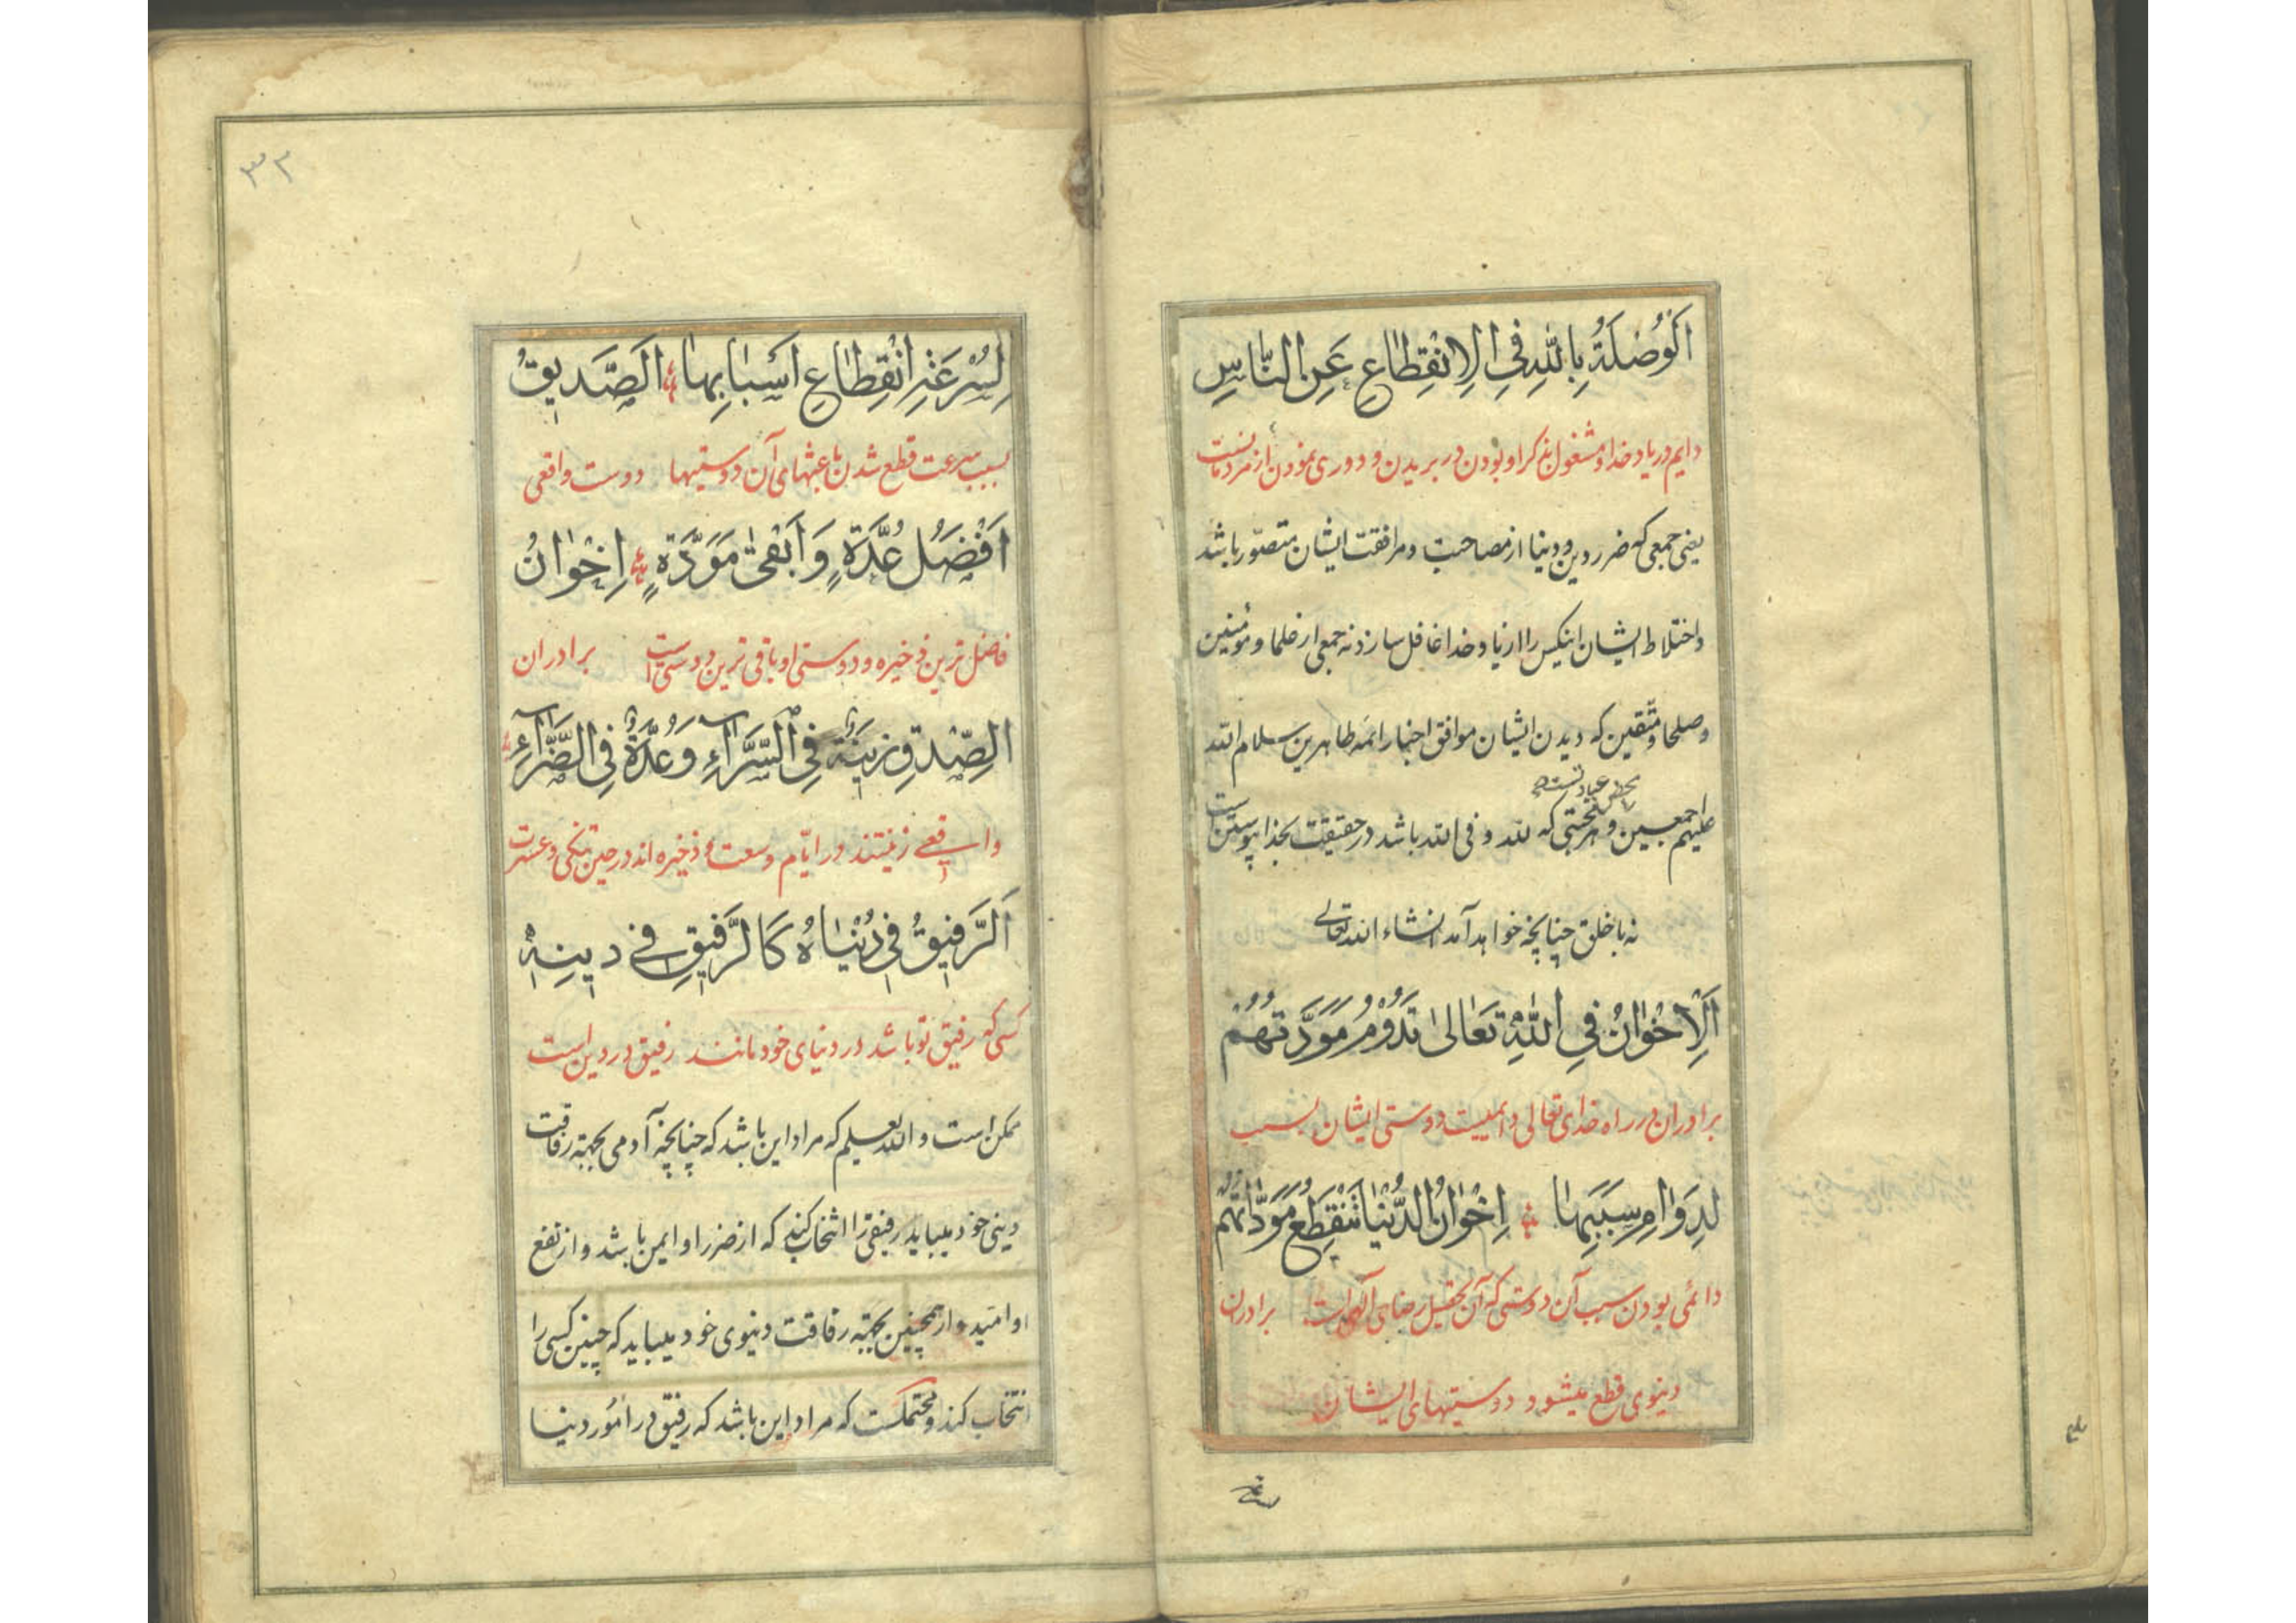 اَلْوُصْلَةُ بِاللّٰهِ فِي الْاِنْقِطَاعِ عَنِ النَّاسِ
دایم در یاد خدا و مشغول بذکر او بودن در بریدن و دوری نمودن از مردمانست
یعنی جمعی که ضرر دین و دنیا از مصاحبت و مرافقت ایشان متصوّر باشد
و اختلاط ایشان اینکس را از یاد خدا غافل سازد نه جمعی از علما و مؤمنین
و صلحا و متّقین که دیدن ایشان موافق اخبار ائمه طاهرین سلام الله
محض عبادتست و
علیهم اجمعین و هر محبتی که لله و فی الله باشد در حقیقت بخدا پیوستن است
نه با خلق چنانچه خواهد آمد انشاء الله تعالی
اَلْاِخْوَانُ فِي اللّٰهِ تَعَالىٰ تَدُوْمُ مَوَدَّتُهُمْ
برادران در راه خدای تعالی دایمیست دوستی ایشان بسبب
لِدَوَامِ سَبَبِهَا اِخْوَانُ الدُّنْيَا تَنْقَطِعُ مَوَدَّاتُهُمْ
دائمی بودن سبب آن دوستی که آن تحصیل رضای الهی است برادران
دنیوی قطع میشود دوستیهای ایشان
لِسُرْعَةِ انْقِطَاعِ اَسْبَابِهَا اَلصَّدِيقُ
۳۲
بسبب سرعت قطع شدن باعثهای آن دوستیها دوست واقعی
اَفْضَلُ عُدَّةٍ وَ اَبْقىٰ مَوَدَّةٍ اِخْوَانُ
فاضل ترین ذخیره و دوستی او باقی ترین دوستی است برادران
الصِّدْقِ زِيْنَةٌ فِي السَّرَّاءِ وَ عُدَّةٌ فِي الضَّرَّاءِ
واقعی زینتند در ایّام وسعت و ذخیره اند در حین تنگی و عسرت
اَلرَّفِيقُ فِي دُنْيَاهُ كَالرَّفِيقِ فِي دِينِهِ
کسی که رفیق تو باشد در دنیای خود مانند رفیق در دین است
ممکن است و الله یعلم که مراد این باشد که چنانچه آدمی بجهته رفاقت
دینی خود میباید رفیقی را انتخاب کند که از ضرر او ایمن باشد و از نفع
او امّیدوار همچنین بجهته رفاقت دنیوی خود میباید که چنین کسی را
انتخاب کند و محتملست که مراد این باشد که رفیق در امور دنیا